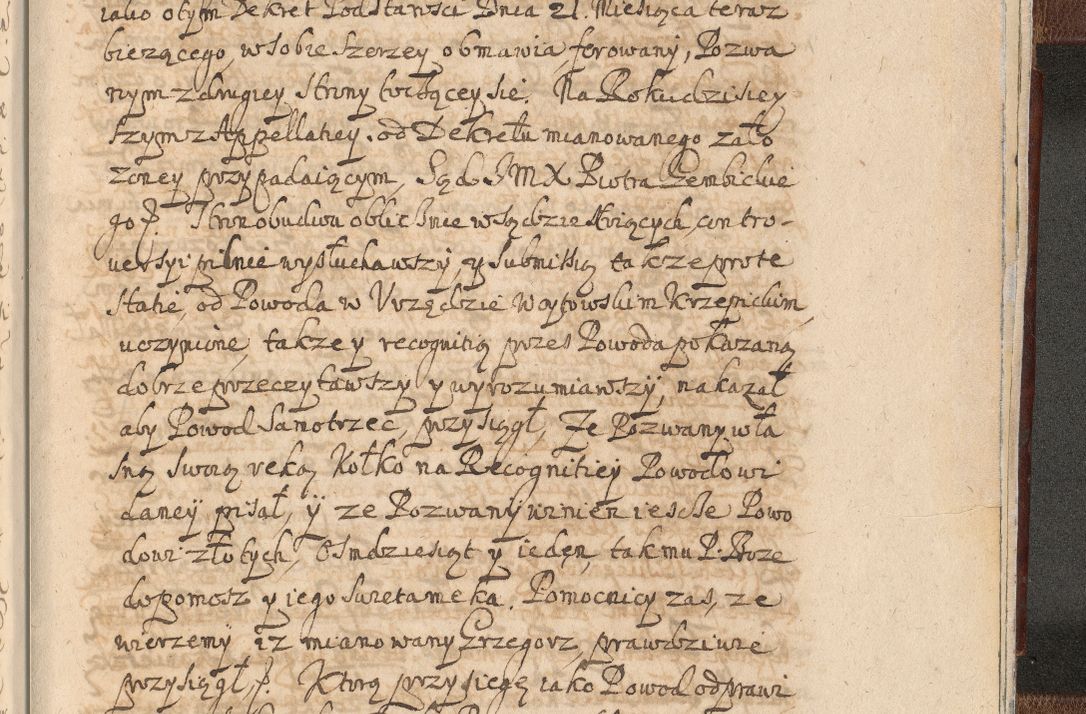 iako o tym Dekret Pod Starości Dnia 21. Miesiąca teraz
biezącego, w sobie szerzey obmawia, ferowany, Pozwa
nym z drugiey Strony toczącey się. Na Roku dzisiey
szym z Appellatiey. od Dekretu mianowanego zało
zoney przypadaiącym, Sąd JMX Piotra Gembickie
go f. Stron obudwu oblicznie w sądzie stoiących contro-
uersyi pilnie wysłuchawszy, y submissią takze prote
statie, od Powoda w Vrzędzie Woytowskim Krzepickim
uczynione, takze y recognitią przes Powoda pokazaną
dobrze przeczytawszy y wyrozumiawszy, nakazał
aby Powod Samotrzec, przysiągł, Ze Pozwany wła
sną swoią ręką Kołko na Recognitiey Powodowi
daney pisał, y ze Pozwany winien iescze Powo
dowi złotych, Osmdziesiąt y ieden, tak mu P. Boze
dopomosz y iego swięta męka. Pomocnicy zas, ze
wierzemy iz mianowany Grzegorz, prawdziwie
przysiągł f. Ktorą przysięgę iako Powod odprawi